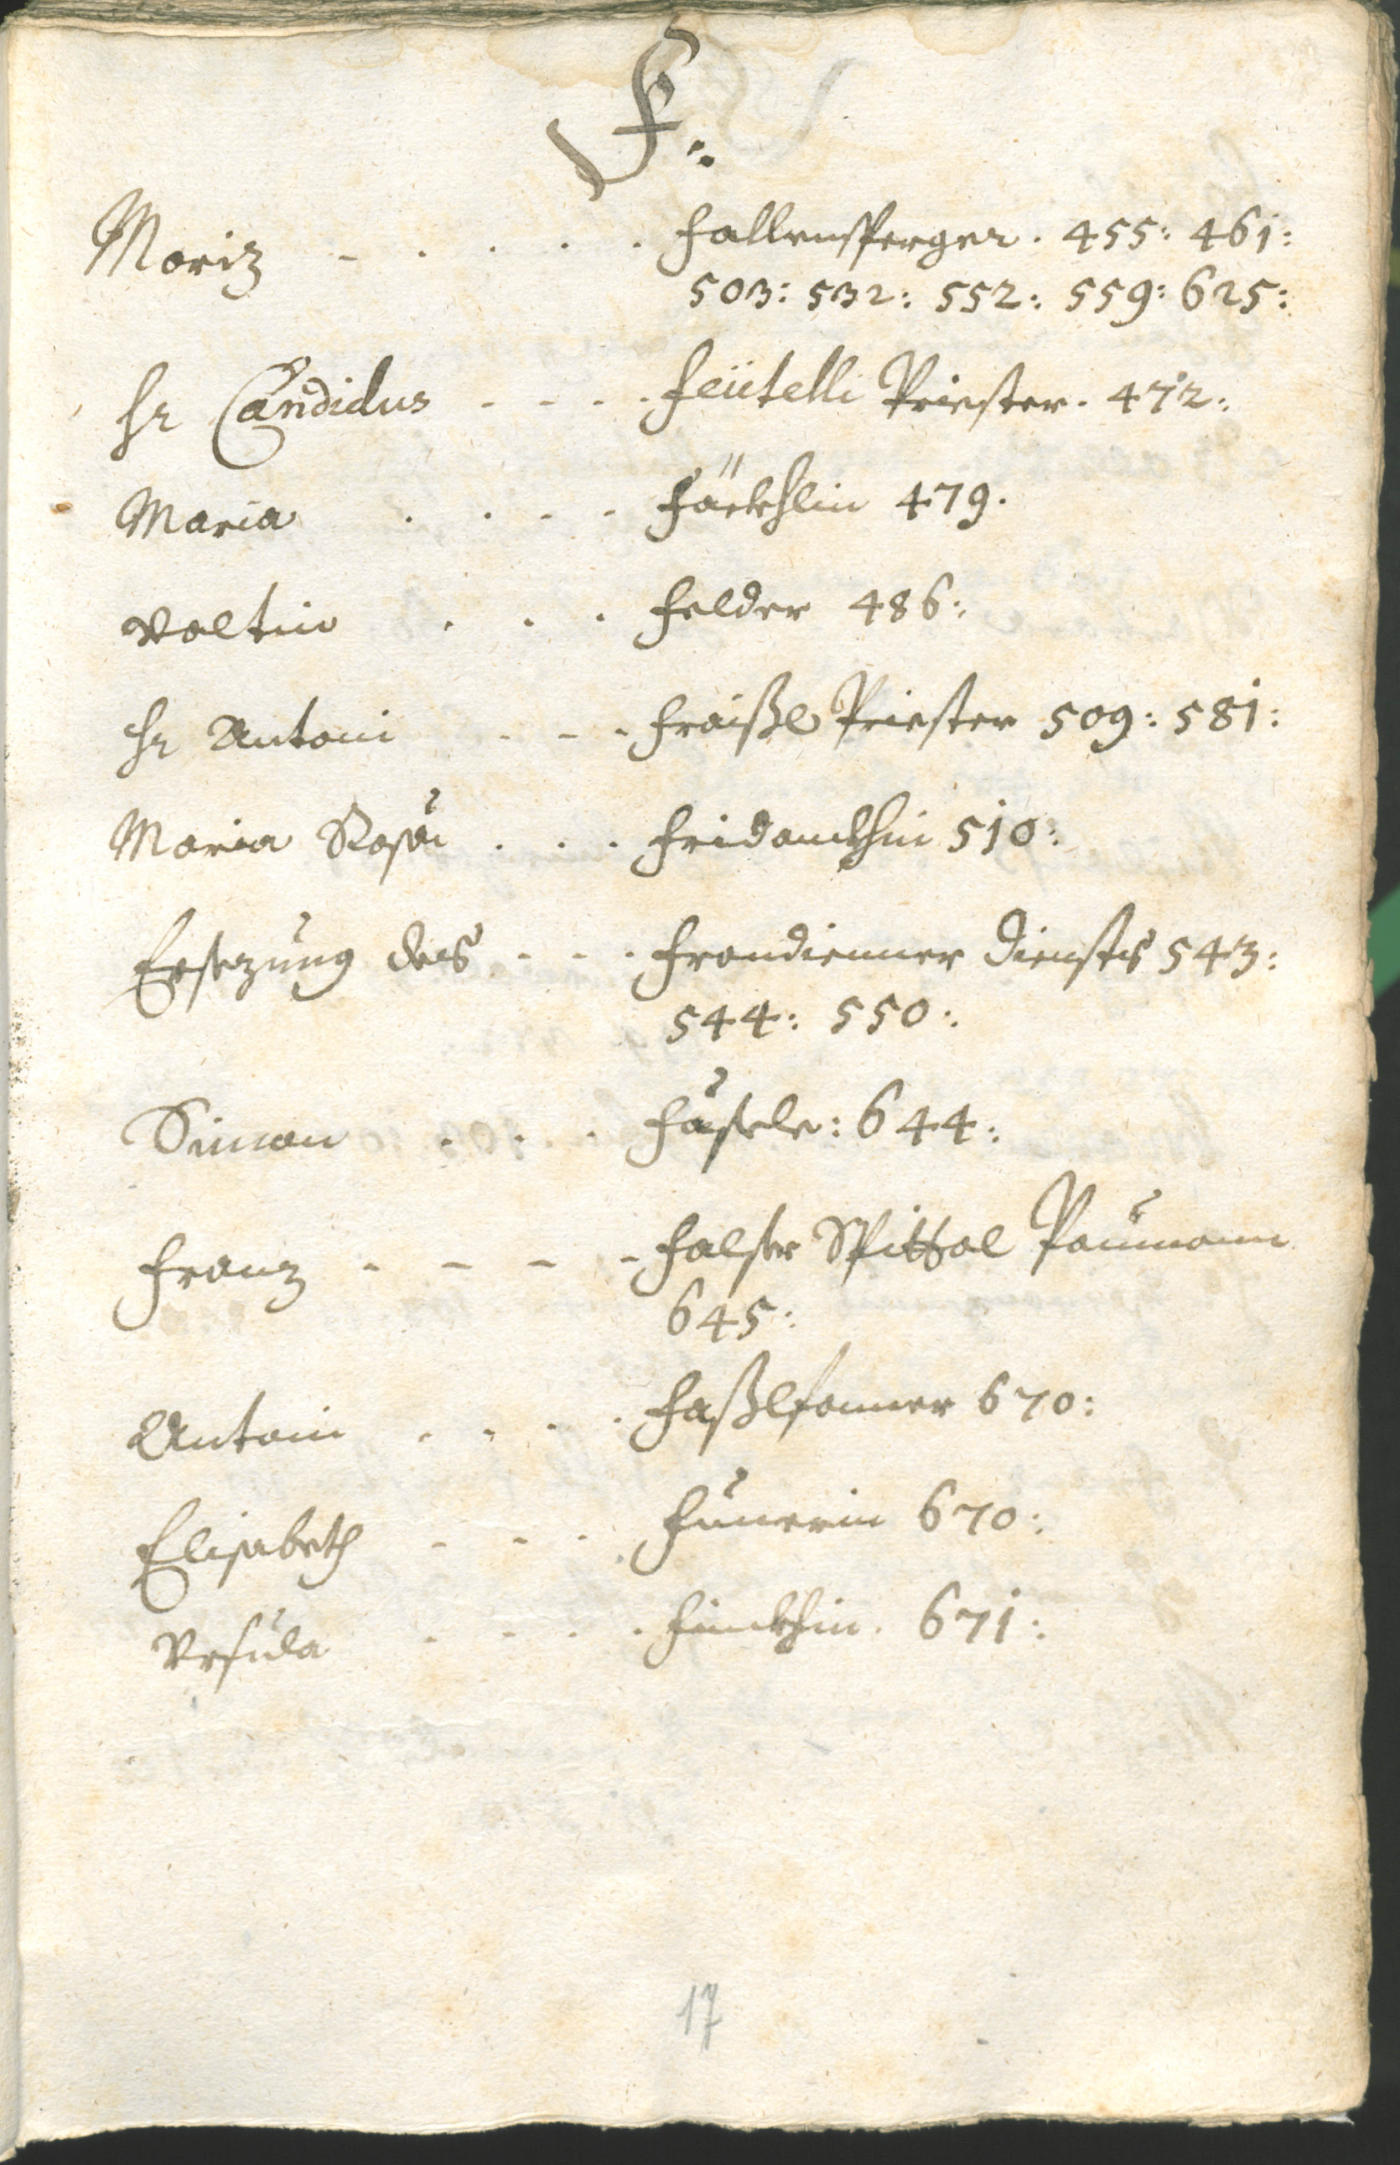 F:
Moriz - . . . . . Fallensperger. 455: 461:
503: 532: 552: 559: 625:
Hr Candidus - - - . Feütelli Priester. 472:
Maria . . - - - Färkhlin 479.
Valtin . . . Felder 486:
Hr Antoni - - - Fraißl Priester 509: 581:
Maria Rosa . . . Fridanckhin 510:
Ersezung des - - . Frondienner Diensts 543:
544: 550:
Simon . . . Fäsele: 644:
Franz - - - - Falser Spittal Paumann
645:
Antoni . . . . Faßlfanner 670:
Elisabeth - - . Funerin 670:
Vrsula . - - . . Funckhin. 671:
17